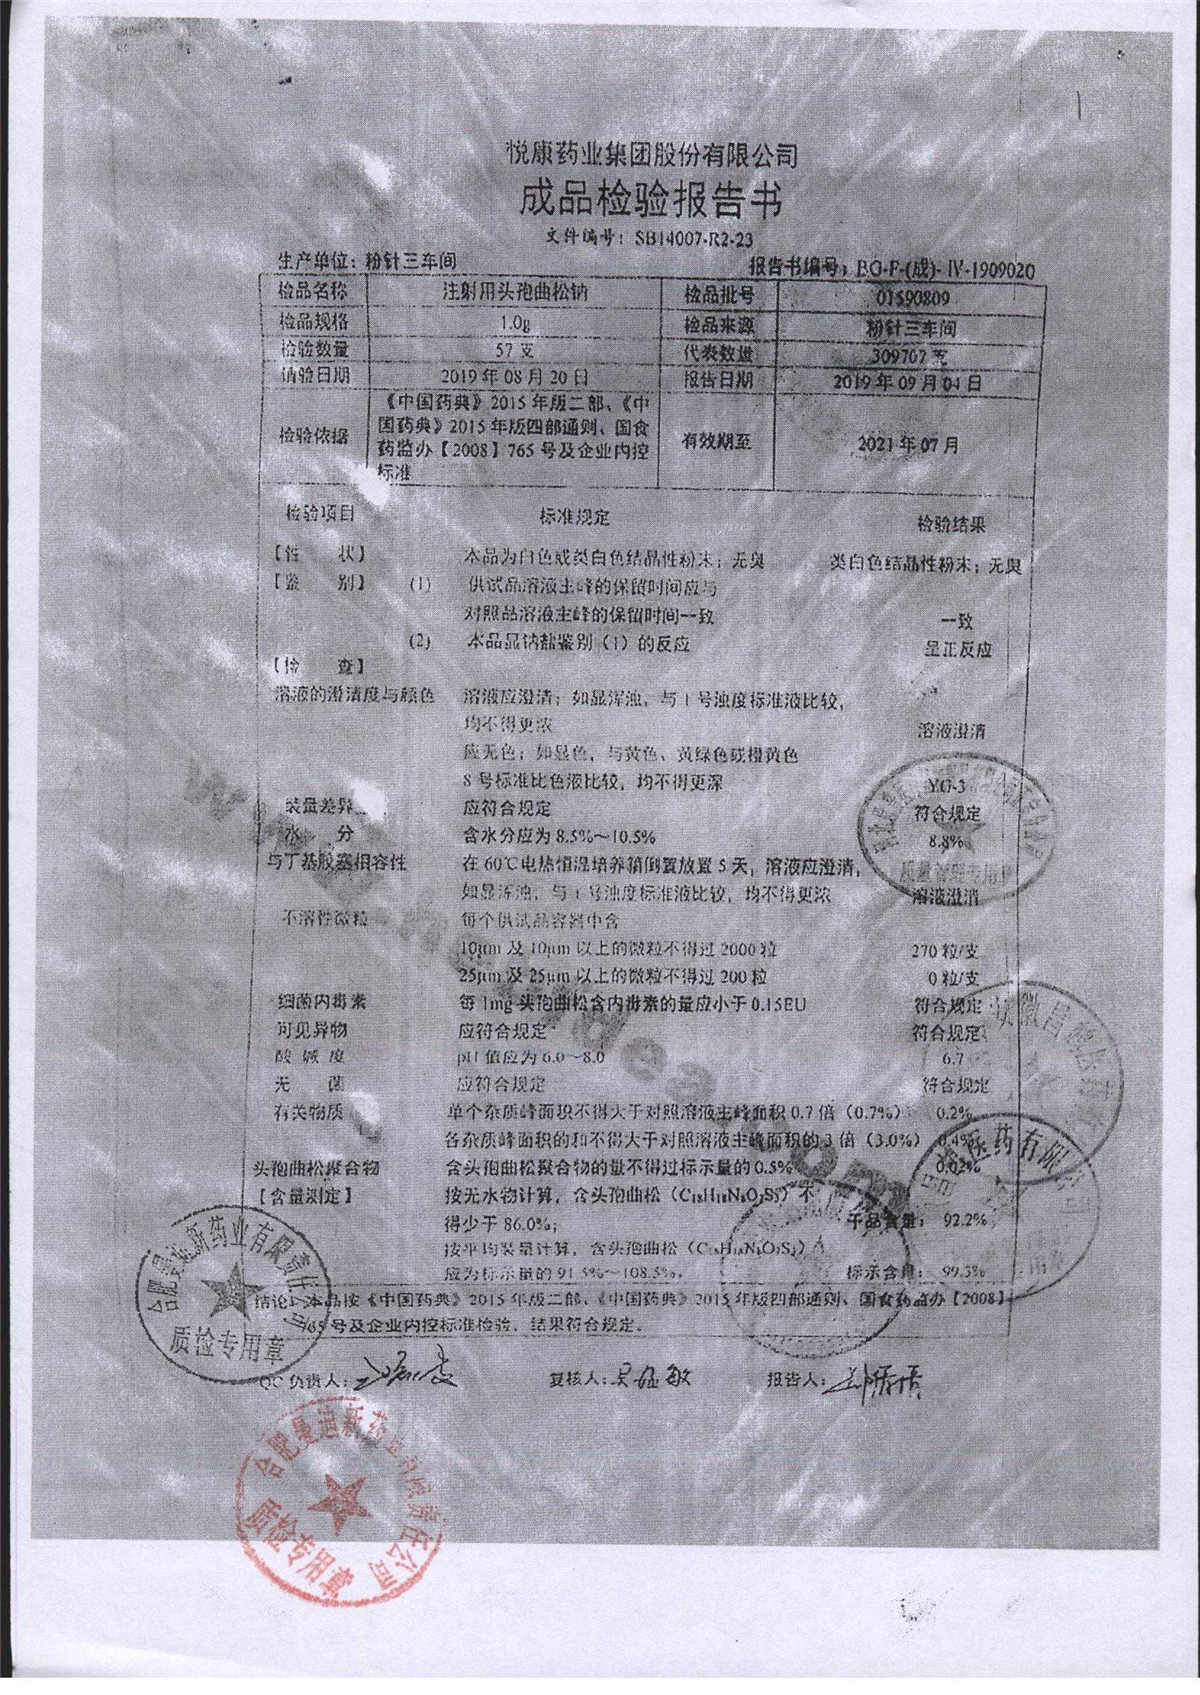 悦康药业集团股份有限公司
成品检验报告书
文件编号：SB14007-R2-23
生产单位：粉针三车间 报告书编号：BG-F-(成)-IV-1909020
检品名称 注射用头孢曲松钠 检品批号 01590809
检品规格 1.0g 检品来源 粉针三车间
检验数量 57 支 代表数量 309707 支
请验日期 2019 年 08 月 20 日 报告日期 2019 年 09 月 04 日
检验依据 《中国药典》2015 年版二部、《中
国药典》2015 年版四部通则、国食
药监办【2008】765 号及企业内控
标准 有效期至 2021 年 07 月
检验项目 标准规定 检验结果
【性 状】 本品为白色或类白色结晶性粉末；无臭 类白色结晶性粉末；无臭
【鉴 别】 (1) 供试品溶液主峰的保留时间应与
对照品溶液主峰的保留时间一致 一致
(2) 本品显钠盐鉴别（1）的反应 呈正反应
【检 查】
溶液的澄清度与颜色 溶液应澄清；如显浑浊，与 1 号浊度标准液比较，
均不得更浓 溶液澄清
应无色；如显色，与黄色、黄绿色或橙黄色
8 号标准比色液比较，均不得更深 YG-3
装量差异 应符合规定 符合规定
水 分 含水分应为 8.5%～10.5% 8.8%
与丁基胶塞相容性 在 60℃电热恒温培养箱倒置放置 5 天，溶液应澄清，
如显浑浊，与 1 号浊度标准液比较，均不得更浓 溶液澄清
不溶性微粒 每个供试品容器中含
10μm 及 10μm 以上的微粒不得过 2000 粒 270 粒/支
25μm 及 25μm 以上的微粒不得过 200 粒 0 粒/支
细菌内毒素 每 1mg 头孢曲松含内毒素的量应小于 0.15EU 符合规定
可见异物 应符合规定 符合规定
酸 碱 度 pH 值应为 6.0～8.0 6.7
无 菌 应符合规定 符合规定
有关物质 单个杂质峰面积不得大于对照溶液主峰面积 0.7 倍（0.7%） 0.2%
各杂质峰面积的和不得大于对照溶液主峰面积的 3 倍（3.0%） 0.4%
头孢曲松聚合物 含头孢曲松聚合物的量不得过标示量的 0.5% 0.02%
【含量测定】 按无水物计算，含头孢曲松（C₁₈H₁₈N₈O₇S₃）不
得少于 86.0%； 干品含量： 92.2%
按平均装量计算，含头孢曲松（C₁₈H₁₈N₈O₇S₃）
应为标示量的 91.5%～108.5%。 标示含量： 99.3%
结论：本品按《中国药典》2015 年版二部、《中国药典》2015 年版四部通则、国食药监办【2008】
765 号及企业内控标准检验，结果符合规定。
QC 负责人： 复核人： 报告人：
合肥曼迪新药业有限责任公司
质检专用章
质量管理专用章
医药有限公司
合肥曼迪新药业有限责任公司
质检专用章